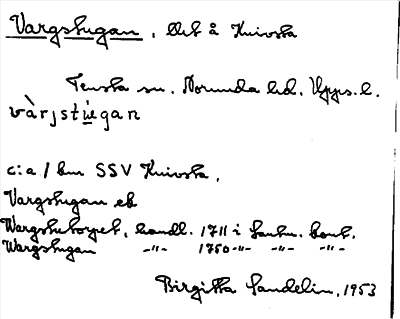 Vargstugan, lht å Knivsta
Tensta sn. Norunda hd. Upps. l.
vàrjstùgan
c:a 1 km SSV Knivsta.
Vargstugan ek
Wargstutorpet, handl. 1711 i lantm. kont.
Wargstugan -"- 1760 -"- -"- -"-
Birgitta Sandelin, 1953